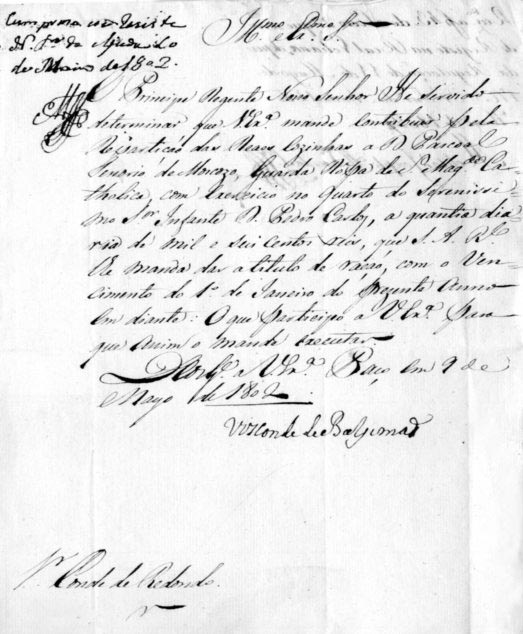 Cumpra-se e Registe
N. Sra. da Ajuda 10
de Maio de 1802.
Illmo. Exmo. Sr.
O Principe Regente Nosso Senhor He servido
determinar que V. Exa. mande contribuir pela
Repartição das Reaes Cozinhas a D. Pascoal
Tenorio de Moscozo, Guarda Ropa de S. Mage. Ca-
tholica, com Exercicio no Quarto do Serenissi-
mo Sor. Infante D. Pedro Carlos, a quantia dia-
ria de mil e seis centos reis, que S. A. Rl.
lhe manda dar a titulo de ração, com o Ven-
cimento do 1o. de Janeiro do prezente Anno
em diante: O que participo a V. Exa. para
que assim o mande executar.
Deos Ge. a V. Exa. Paço em 9 de
Mayo de 1802
Visconde de Balsemaõ
Sr. Conde de Redondo.